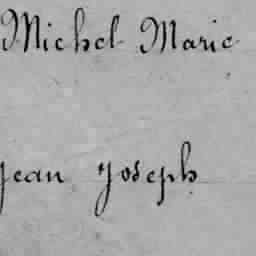 Michel Marie
Jean Joseph